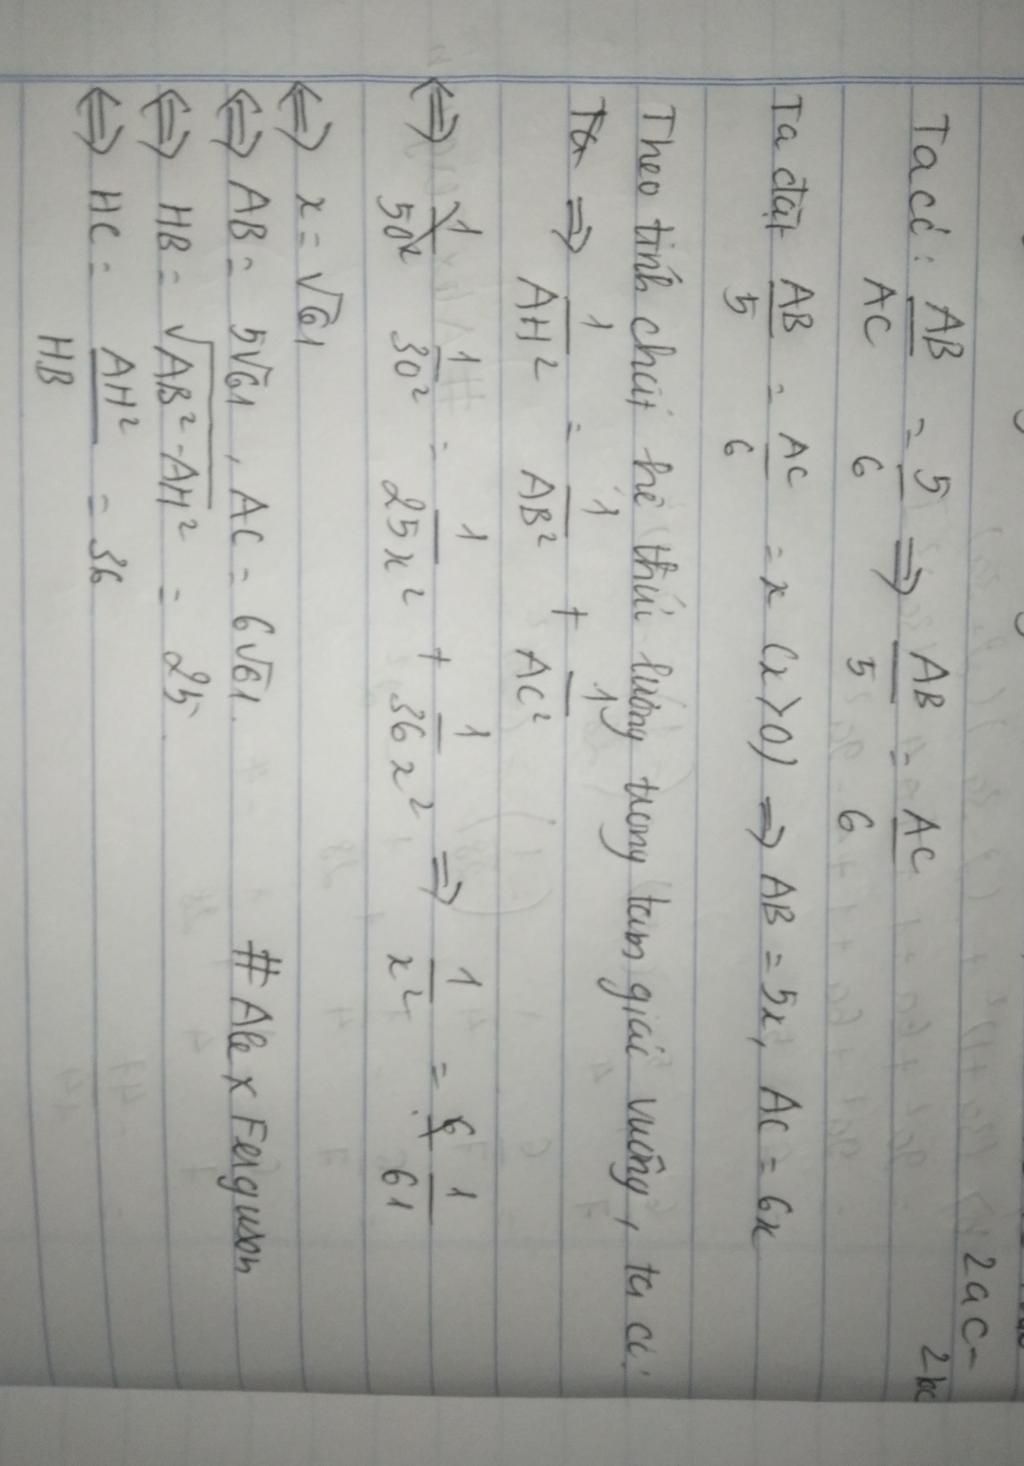 2ac-
2bc
Ta có: AB/AC = 5/6 ⇒ AB/5 = AC/6
Ta đặt AB/5 = AC/6 = x (x>0) ⇒ AB = 5x, AC = 6x
Theo tính chất hệ thức lượng trong tam giác vuông, ta có:
Ta ⇒ 1/AH² = 1/AB² + 1/AC²
⇔ 1/30² = 1/25x² + 1/36x² ⇒ 1/x² = 1/61
⇔ x = √61
⇔ AB = 5√61, AC = 6√61. # Alex Ferguson
⇔ HB = √AB² - AH² = 25
⇔ HC = AH²/HB = 36